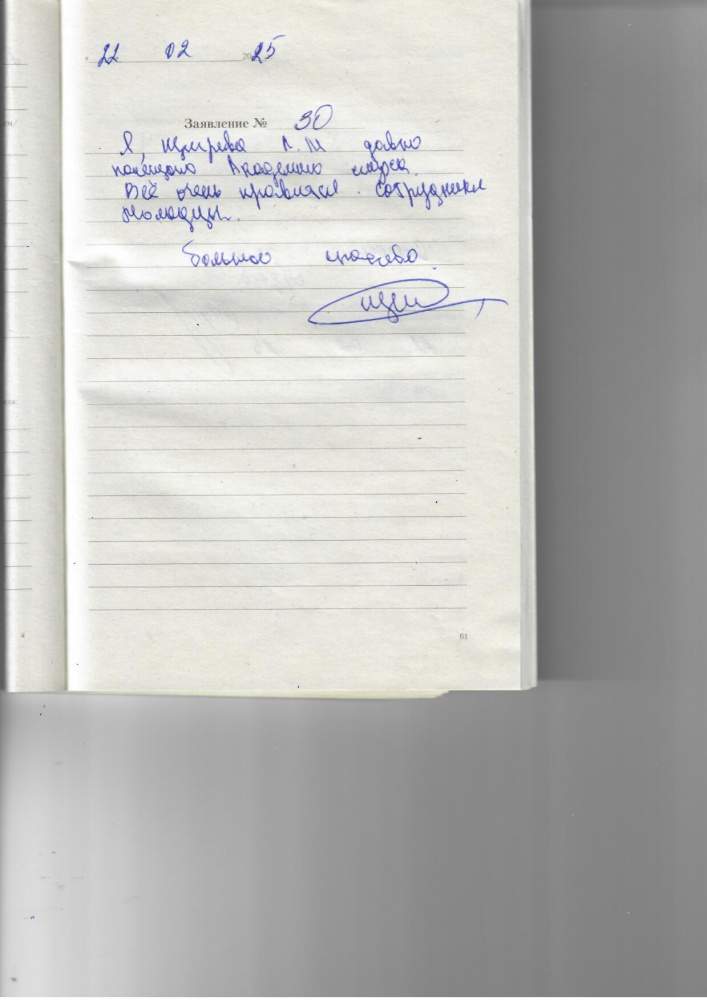 22 02 2025
Заявление № 30
Я, Л. М давно
посещаю Академию
Всё очень нравится. Сотрудники
молодцы.
Большое спасибо.
61